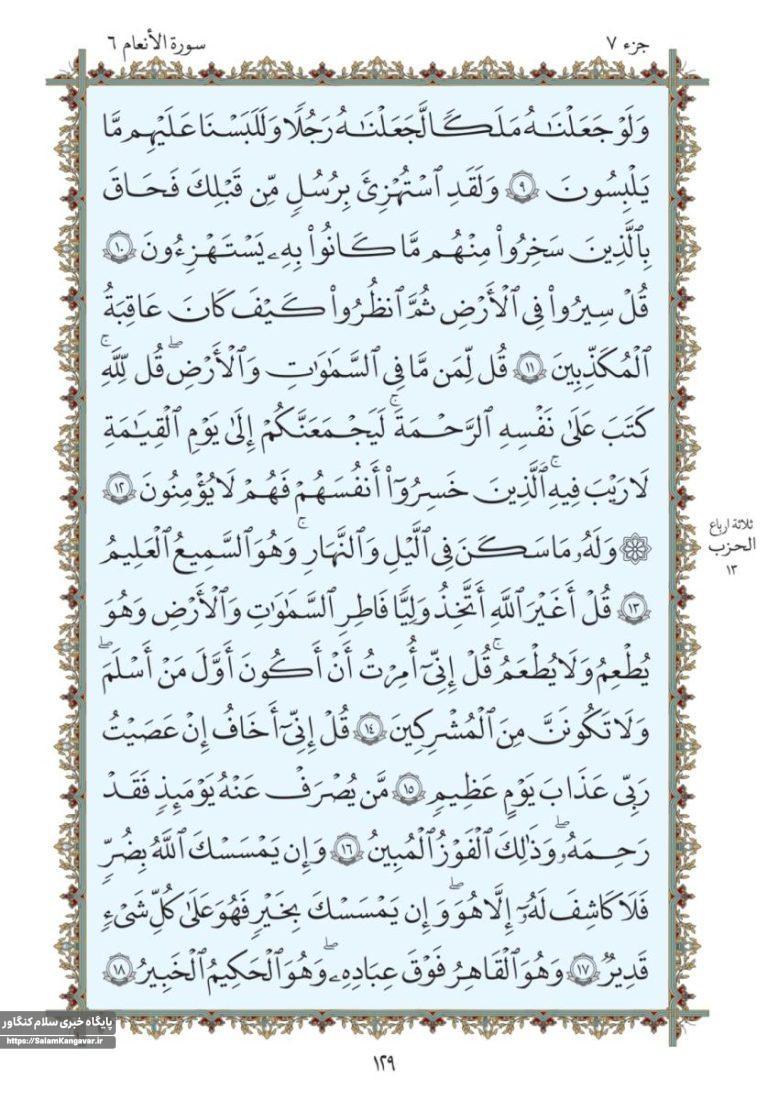 جزء ٧
سورة الأنعام ٦
وَلَوْ جَعَلْنَٰهُ مَلَكًا لَّجَعَلْنَٰهُ رَجُلًا وَلَلَبَسْنَا عَلَيْهِم مَّا
يَلْبِسُونَ ٩ وَلَقَدِ ٱسْتُهْزِئَ بِرُسُلٍ مِّن قَبْلِكَ فَحَاقَ
بِٱلَّذِينَ سَخِرُوا۟ مِنْهُم مَّا كَانُوا۟ بِهِۦ يَسْتَهْزِءُونَ ١٠
قُلْ سِيرُوا۟ فِى ٱلْأَرْضِ ثُمَّ ٱنظُرُوا۟ كَيْفَ كَانَ عَاقِبَةُ
ٱلْمُكَذِّبِينَ ١١ قُل لِّمَن مَّا فِى ٱلسَّمَٰوَٰتِ وَٱلْأَرْضِ ۖ قُل لِّلَّهِ ۚ
كَتَبَ عَلَىٰ نَفْسِهِ ٱلرَّحْمَةَ ۚ لَيَجْمَعَنَّكُمْ إِلَىٰ يَوْمِ ٱلْقِيَٰمَةِ
لَا رَيْبَ فِيهِ ۚ ٱلَّذِينَ خَسِرُوٓا۟ أَنفُسَهُمْ فَهُمْ لَا يُؤْمِنُونَ ١٢
۞ وَلَهُۥ مَا سَكَنَ فِى ٱلَّيْلِ وَٱلنَّهَارِ ۚ وَهُوَ ٱلسَّمِيعُ ٱلْعَلِيمُ
١٣ قُلْ أَغَيْرَ ٱللَّهِ أَتَّخِذُ وَلِيًّا فَاطِرِ ٱلسَّمَٰوَٰتِ وَٱلْأَرْضِ وَهُوَ
يُطْعِمُ وَلَا يُطْعَمُ ۗ قُلْ إِنِّىٓ أُمِرْتُ أَنْ أَكُونَ أَوَّلَ مَنْ أَسْلَمَ ۖ
وَلَا تَكُونَنَّ مِنَ ٱلْمُشْرِكِينَ ١٤ قُلْ إِنِّىٓ أَخَافُ إِنْ عَصَيْتُ
رَبِّى عَذَابَ يَوْمٍ عَظِيمٍ ١٥ مَّن يُصْرَفْ عَنْهُ يَوْمَئِذٍ فَقَدْ
رَحِمَهُۥ ۚ وَذَٰلِكَ ٱلْفَوْزُ ٱلْمُبِينُ ١٦ وَإِن يَمْسَسْكَ ٱللَّهُ بِضُرٍّ
فَلَا كَاشِفَ لَهُۥٓ إِلَّا هُوَ ۖ وَإِن يَمْسَسْكَ بِخَيْرٍ فَهُوَ عَلَىٰ كُلِّ شَىْءٍ
قَدِيرٌ ١٧ وَهُوَ ٱلْقَاهِرُ فَوْقَ عِبَادِهِۦ ۚ وَهُوَ ٱلْحَكِيمُ ٱلْخَبِيرُ ١٨
ثلاثة ارباع
الحزب
١٣
١٢٩
پایگاه خبری سلام کنگاور
https://SalamKangavar.ir